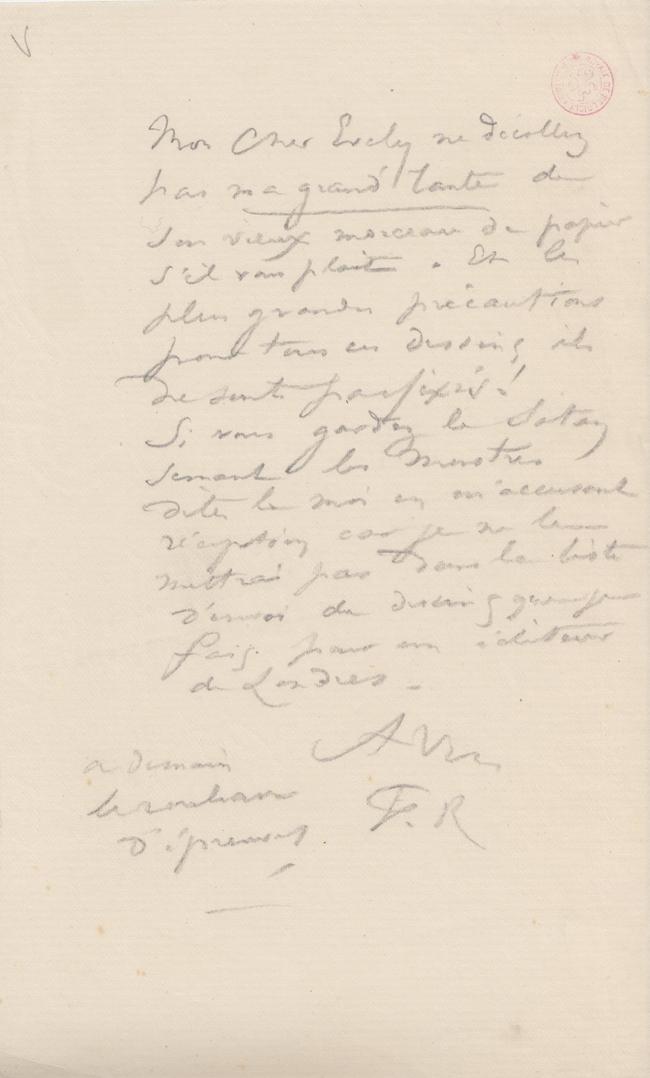 Mon Cher Evely ne décollez
pas ma grand'tante de
son vieux morceau de papier
s'il vous plait. Et les
plus grandes précautions
pour tous ces dessins, ils
ne sont pas fixés!
Si vous gardez le Satan
semant les Monstres
dites le moi en m'accusant
réception car je ne le
mettrai pas dans la liste
d'envoi de dessins que je
fais pour un éditeur
de Londres.
A Vous
F. R
a demain
le rouleau
d'épreuves